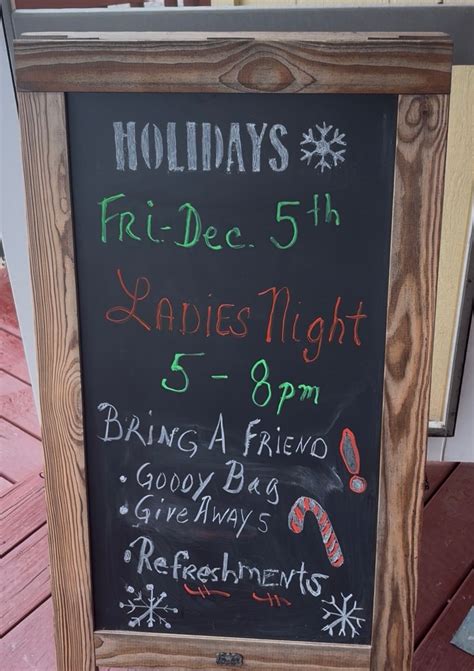 HOLIDAYS
FRi-Dec. 5th
LADIES Night
5 - 8pm
BRiNG A FRiEND!
• GOODY BAg
• Give AWAYS
• REFRESHMENTS